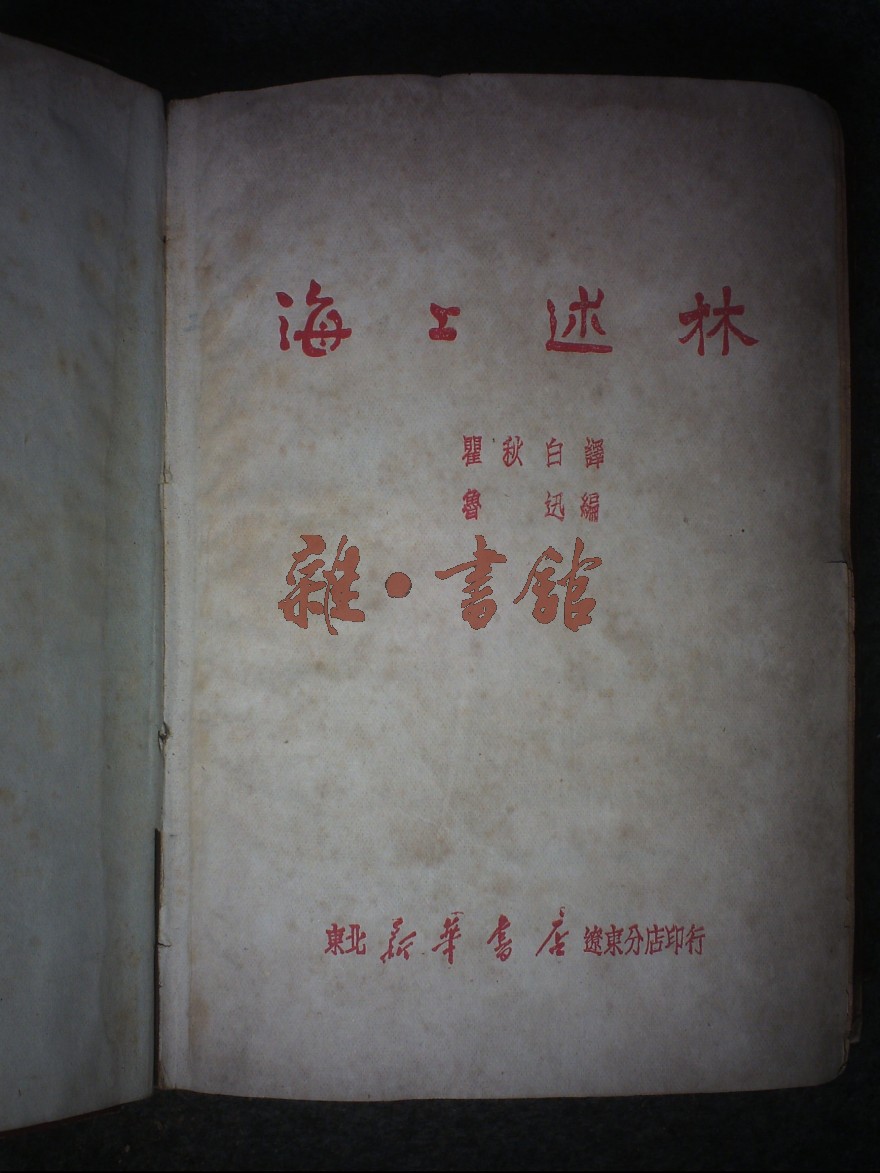 海上述林
瞿秋白譯
魯迅編
雜·書館
東北新華書店遼東分店印行